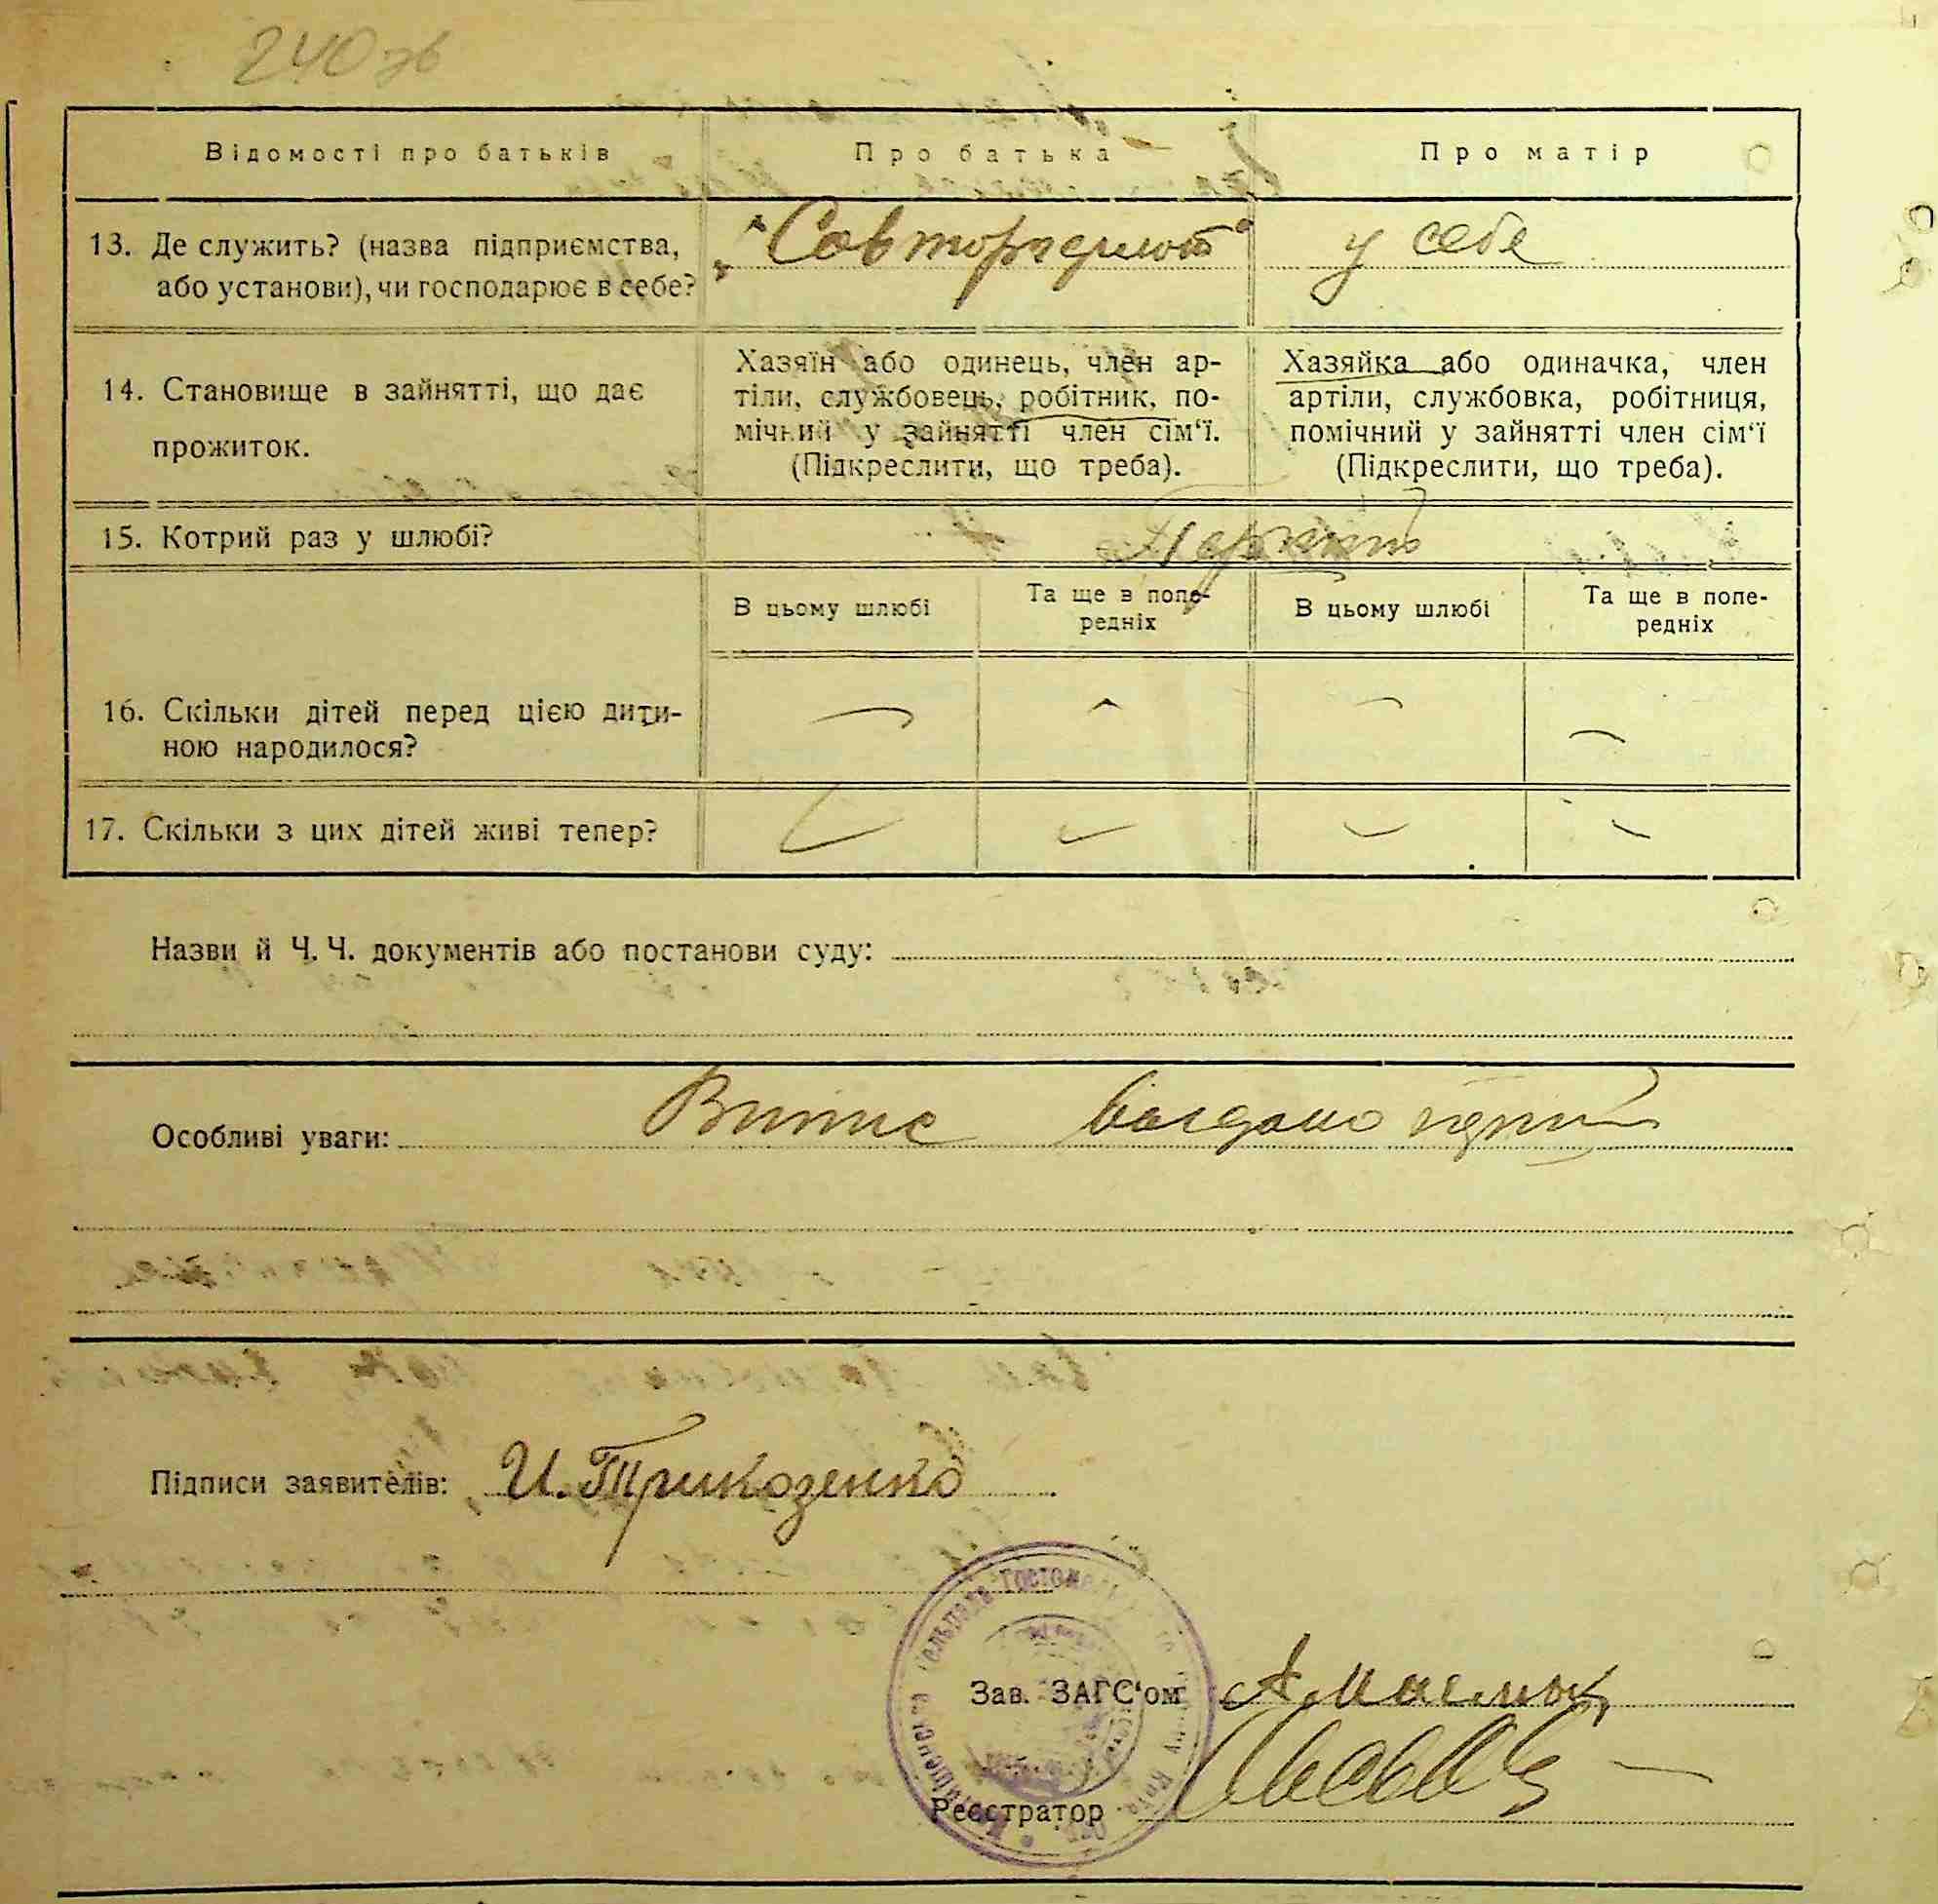 240 зв
Відомості про батьків Про батька Про матір
13. Де служить? (назва підприємства, або установи), чи господарює в себе?
"Совторгфлот" у себе
14. Становище в зайнятті, що дає прожиток.
Хазяїн або одинець, член ар-
тіли, службовець, робітник, по-
мічний у зайнятті член сім'ї.
(Підкреслити, що треба).
Хазяйка або одиначка, член
артіли, службовка, робітниця,
помічний у зайнятті член сім'ї
(Підкреслити, що треба).
15. Котрий раз у шлюбі?
В цьому шлюбі Та ще в попе-
редніх
В цьому шлюбі Та ще в попе-
редніх
16. Скільки дітей перед цією дити-
ною народилося?
17. Скільки з цих дітей живі тепер?
Назви й Ч. Ч. документів або постанови суду:
Особливі уваги: Витис
Підписи заявителів: И. Трикозенко
Зав. ЗАГС'ом
Реєстратор